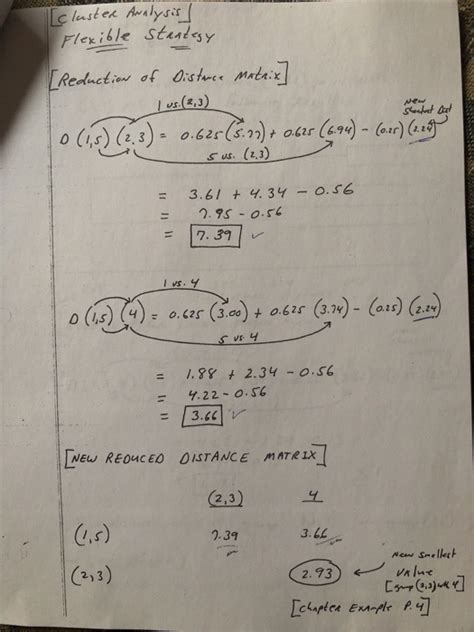 [Cluster Analysis]
Flexible Strategy
[Reduction of Distance Matrix]
1 vs. (2,3)
New Shortest Dist
D (1,5) (2,3) = 0.625 (5.77) + 0.625 (6.94) - (0.25) (2.24)
5 vs. (2,3)
= 3.61 + 4.34 - 0.56
= 7.95 - 0.56
= 7.39 ✓
1 vs. 4
D (1,5) (4) = 0.625 (3.00) + 0.625 (3.74) - (0.25) (2.24)
5 vs. 4
= 1.88 + 2.34 - 0.56
= 4.22 - 0.56
= 3.66 ✓
[NEW REDUCED DISTANCE MATRIX]
(2,3) 4
(1,5) 7.39 3.66
(2,3) 2.93
New smallest
value
[group (2,3) with 4]
[Chapter Example P.4]